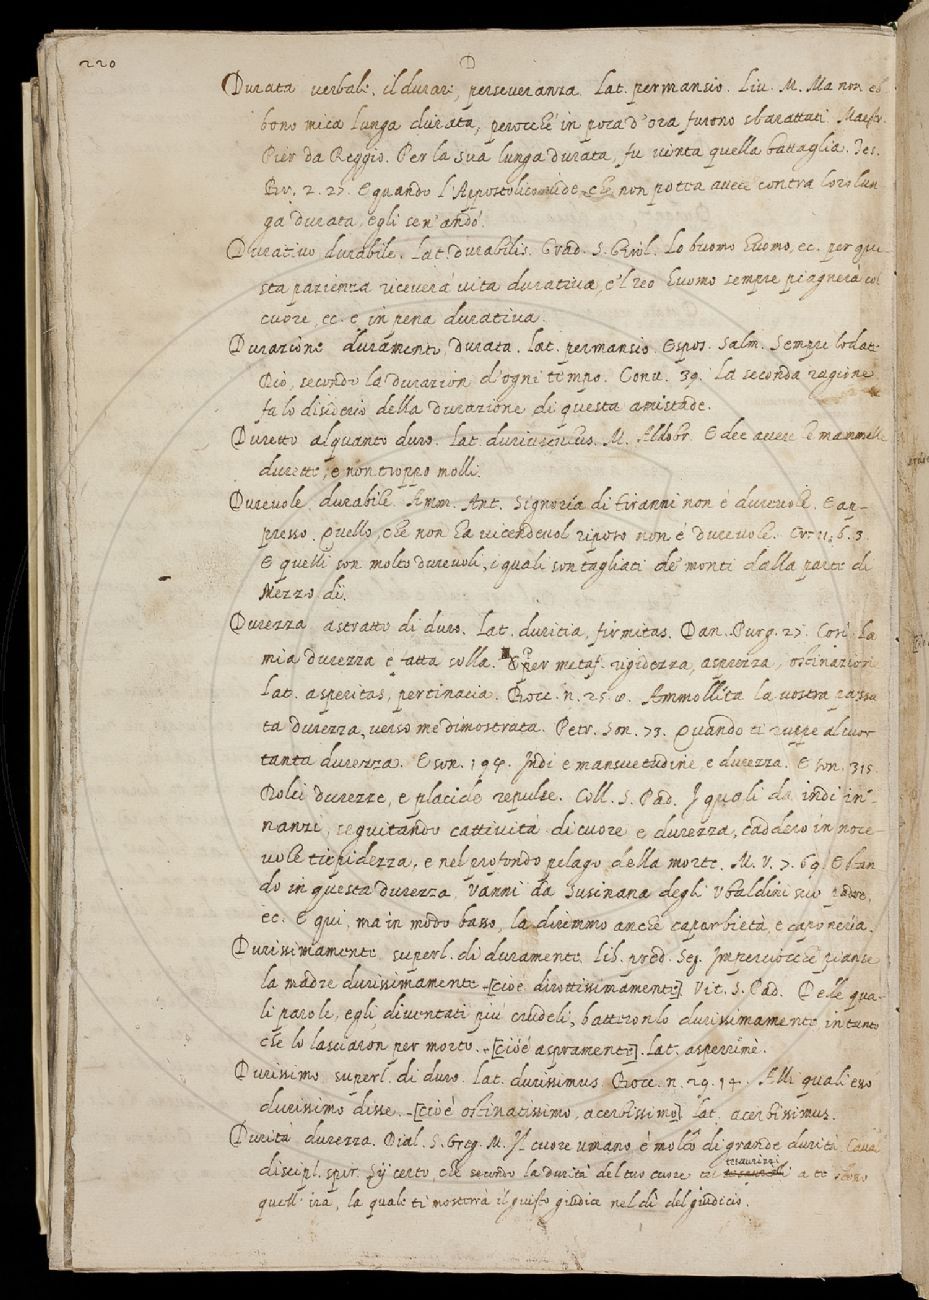 220
D
Durata verbale. il durare, perseveranza. Lat. permansio. Liv. M. Ma non eb-
bono mica lunga durata, perocchè in poca d'ora furono sbarattati. Maestr.
Pier da Reggio. Per la sua lunga durata, fu vinta quella battaglia. Tes.
Br. 2. 27. E quando l'Appostolico vide, che non potea avere contra loro lun
ga durata, egli sen'andò.
Durativo durabile. Lat. durabilis. Grad. S. Girol. Lo buomo huomo, ec. per que-
sta pazienza riceverà vita durativa, e'l reo huomo sempre piagnerà col
cuore, ec. e in pena durativa.
Durazione duramento, durata. Lat. permansio. Espos. Salm. Sempre lodat
Dio, secondo la durazion d'ogni tempo. Conv. 39. La seconda ragione
fa lo disiderio della durazione di questa amistade.
Duretto alquanto duro. Lat. M. Aldobr. E dee avere le mammelle
durette, e non troppo molli.
Durevole durabile. Amm. Ant. Signoria di tiranni non è durevole. E ap-
presso. Quello, che non ha vicendevol riposo non è durevole. Cr. 11. 6. 3.
E quelli son molto durevoli, i quali son tagliati de' monti dalla parte di
Mezzo dì.
Durezza astratto di duro. Lat. duritia, firmitas. Dan. Purg. 27. Così la
mia durezza è fatta solla. E per metaf. rigidezza, asprezza, ostinazione
Lat. asperitas, pertinacia. Bocc. n. 25. Ammollita la vostra passa
ta durezza, verso me dimostrata. Petr. Son. 73. Quando ti ruppe al cuor
tanta durezza. E son. 194. Indi e mansuetudine, e durezza. E son. 315
Dolci durezze, e placide repulse. Coll. S. Pad. I quali da indi in-
nanzi, seguitando cattività di cuore e durezza, caddero in noce-
vole tiepidezza, e nel profondo pelago della morte. M. V. 7. 69. Stan
do in questa durezza, Vanni da Susinana degli Ubaldini suo padre,
ec. e qui, ma in modo basso, la diremmo anche caparbietà, e caponeria.
Durissimamente superl. di duramente. Lib. pred. Imperciocchè pianse
la madre durissimamente [cioè dirottissimamente] Vit. S. Pad. Delle qua-
li parole, egli, diventati più crudeli, batteronlo durissimamente intanto
che lo lasciaron per morto. [cioè aspramente]. Lat. asperrimè.
Durissimo superl. di duro. Lat. durissimus. Bocc. n. 29. 14. Alli quali esso
durissimo disse. [cioè ostinatissimo, acerbissimo] Lat. acerbissimus.
Durità durezza. Dial. S. Greg. M. Il cuore umano, è molto di grande durità. Caval
discipl. spir. Sij certo, che secondo la durità del tuo cuore tu tesaurizzi a te stesso
quell'ira, la quale ti mostrerrà il giusto giudice nel dì del giudicio.